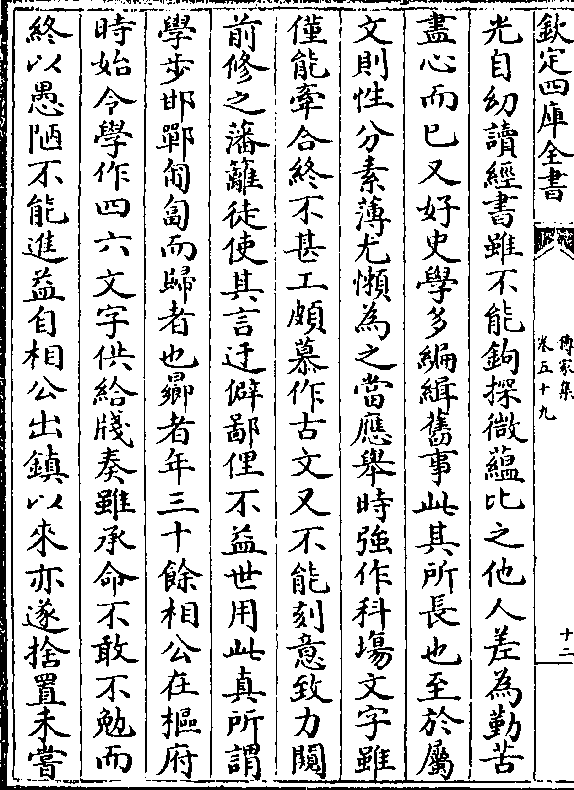 欽定四庫全書
傳家集
卷五十九
十二
光自幼讀經書雖不能鉤探微蘊比之他人差為勤苦
盡心而已又好史學多編緝舊事此其所長也至於屬
文則性分素薄尤懶為之當應舉時強作科場文字雖
僅能牽合終不甚工頗慕作古文又不能刻意致力闚
前修之藩籬徒使其言迂僻鄙俚不益世用此真所謂
學步邯鄲匍匐而歸者也曏者年三十餘相公在樞府
時始令學作四六文字供給牋奏雖承命不敢不勉而
終以愚陋不能進益自相公出鎮以來亦遂捨置未嘗